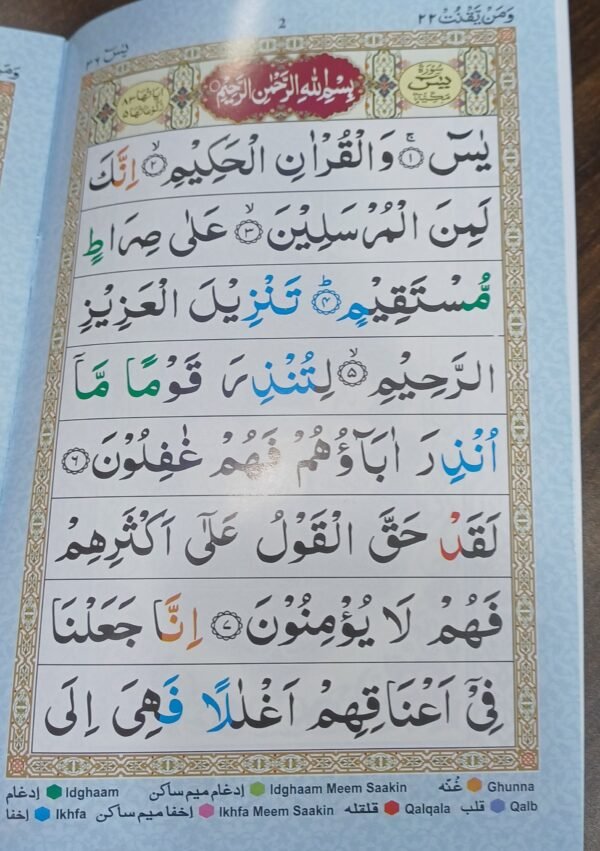 وَمَنْ يَّقْنُتْ ٢٢
2
يٰسٓ ٣٦
سُوْرَةُ يٰسٓ مَكِّيَّةٌ
بِسْمِ اللهِ الرَّحْمٰنِ الرَّحِيْمِ
اٰیَاتُهَا ٨٣ رُكُوْعَاتُهَا ٥
يٰسٓ ۚ﴿١﴾ وَالْقُرْاٰنِ الْحَكِيْمِ ۙ﴿٢﴾ اِنَّكَ
لَمِنَ الْمُرْسَلِيْنَ ۙ﴿٣﴾ عَلٰى صِرَاطٍ
مُّسْتَقِيْمٍ ؕ﴿٤﴾ تَنْزِيْلَ الْعَزِيْزِ
الرَّحِيْمِ ۙ﴿٥﴾ لِتُنْذِرَ قَوْمًا مَّاۤ
اُنْذِرَ اٰبَآؤُهُمْ فَهُمْ غٰفِلُوْنَ ﴿٦﴾
لَقَدْ حَقَّ الْقَوْلُ عَلٰٓى اَكْثَرِهِمْ
فَهُمْ لَا يُؤْمِنُوْنَ ﴿٧﴾ اِنَّا جَعَلْنَا
فِيْۤ اَعْنَاقِهِمْ اَغْلٰلًا فَهِيَ اِلَى
إدغام Idghaam إدغام ميم ساكن Idghaam Meem Saakin غُنّه Ghunna
إخفا Ikhfa إخفا ميم ساكن Ikhfa Meem Saakin قلقله Qalqala قلب Qalb